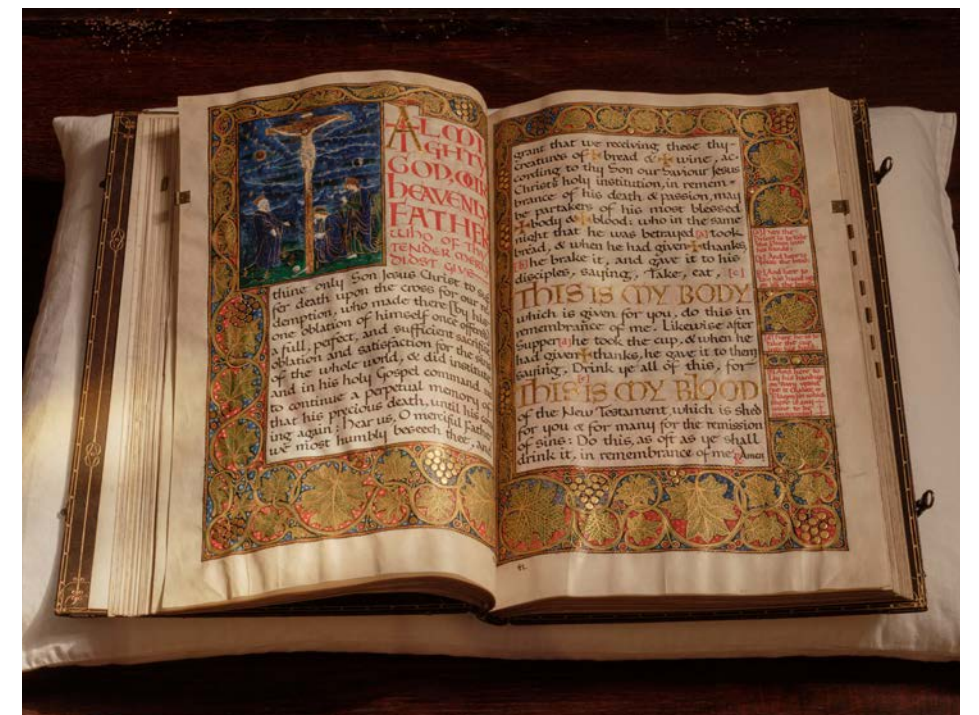 ALMI
GHTY
GOD, OUR
HEAVENLY
FATHER
who of thy
TENDER MERCY
DIDST GIVE
thine only Son Jesus Christ to suf
fer death upon the cross for our re
demption, who made there [by his
one oblation of himself once offered]
a full, perfect, and sufficient sacrifice
oblation and satisfaction for the sins
of the whole world, & did institute
and in his holy Gospel command us
to continue a perpetual memory of
that his precious death, until his com
ing again: Hear us, O merciful Father
we most humbly beseech thee, and
grant that we receiving these thy
creatures of bread & wine, ac-
cording to thy Son our Saviour Jesus
Christ's holy institution, in remem-
brance of his death & passion, may
be partakers of his most blessed
body & blood: who in the same
night that he was betrayed [a] took
bread, & when he had given thanks,
[b] he brake it, and gave it to his
disciples, saying, Take, eat, [c]
THIS IS MY BODY
which is given for you, do this in
remembrance of me. Likewise after
Supper [d] he took the cup, & when he
had given thanks, he gave it to them
saying, Drink ye all of this, for
THIS IS MY BLOOD
of the New Testament, which is shed
for you & for many for the remission
of sins: Do this, as oft as ye shall
drink it, in remembrance of me. Amen